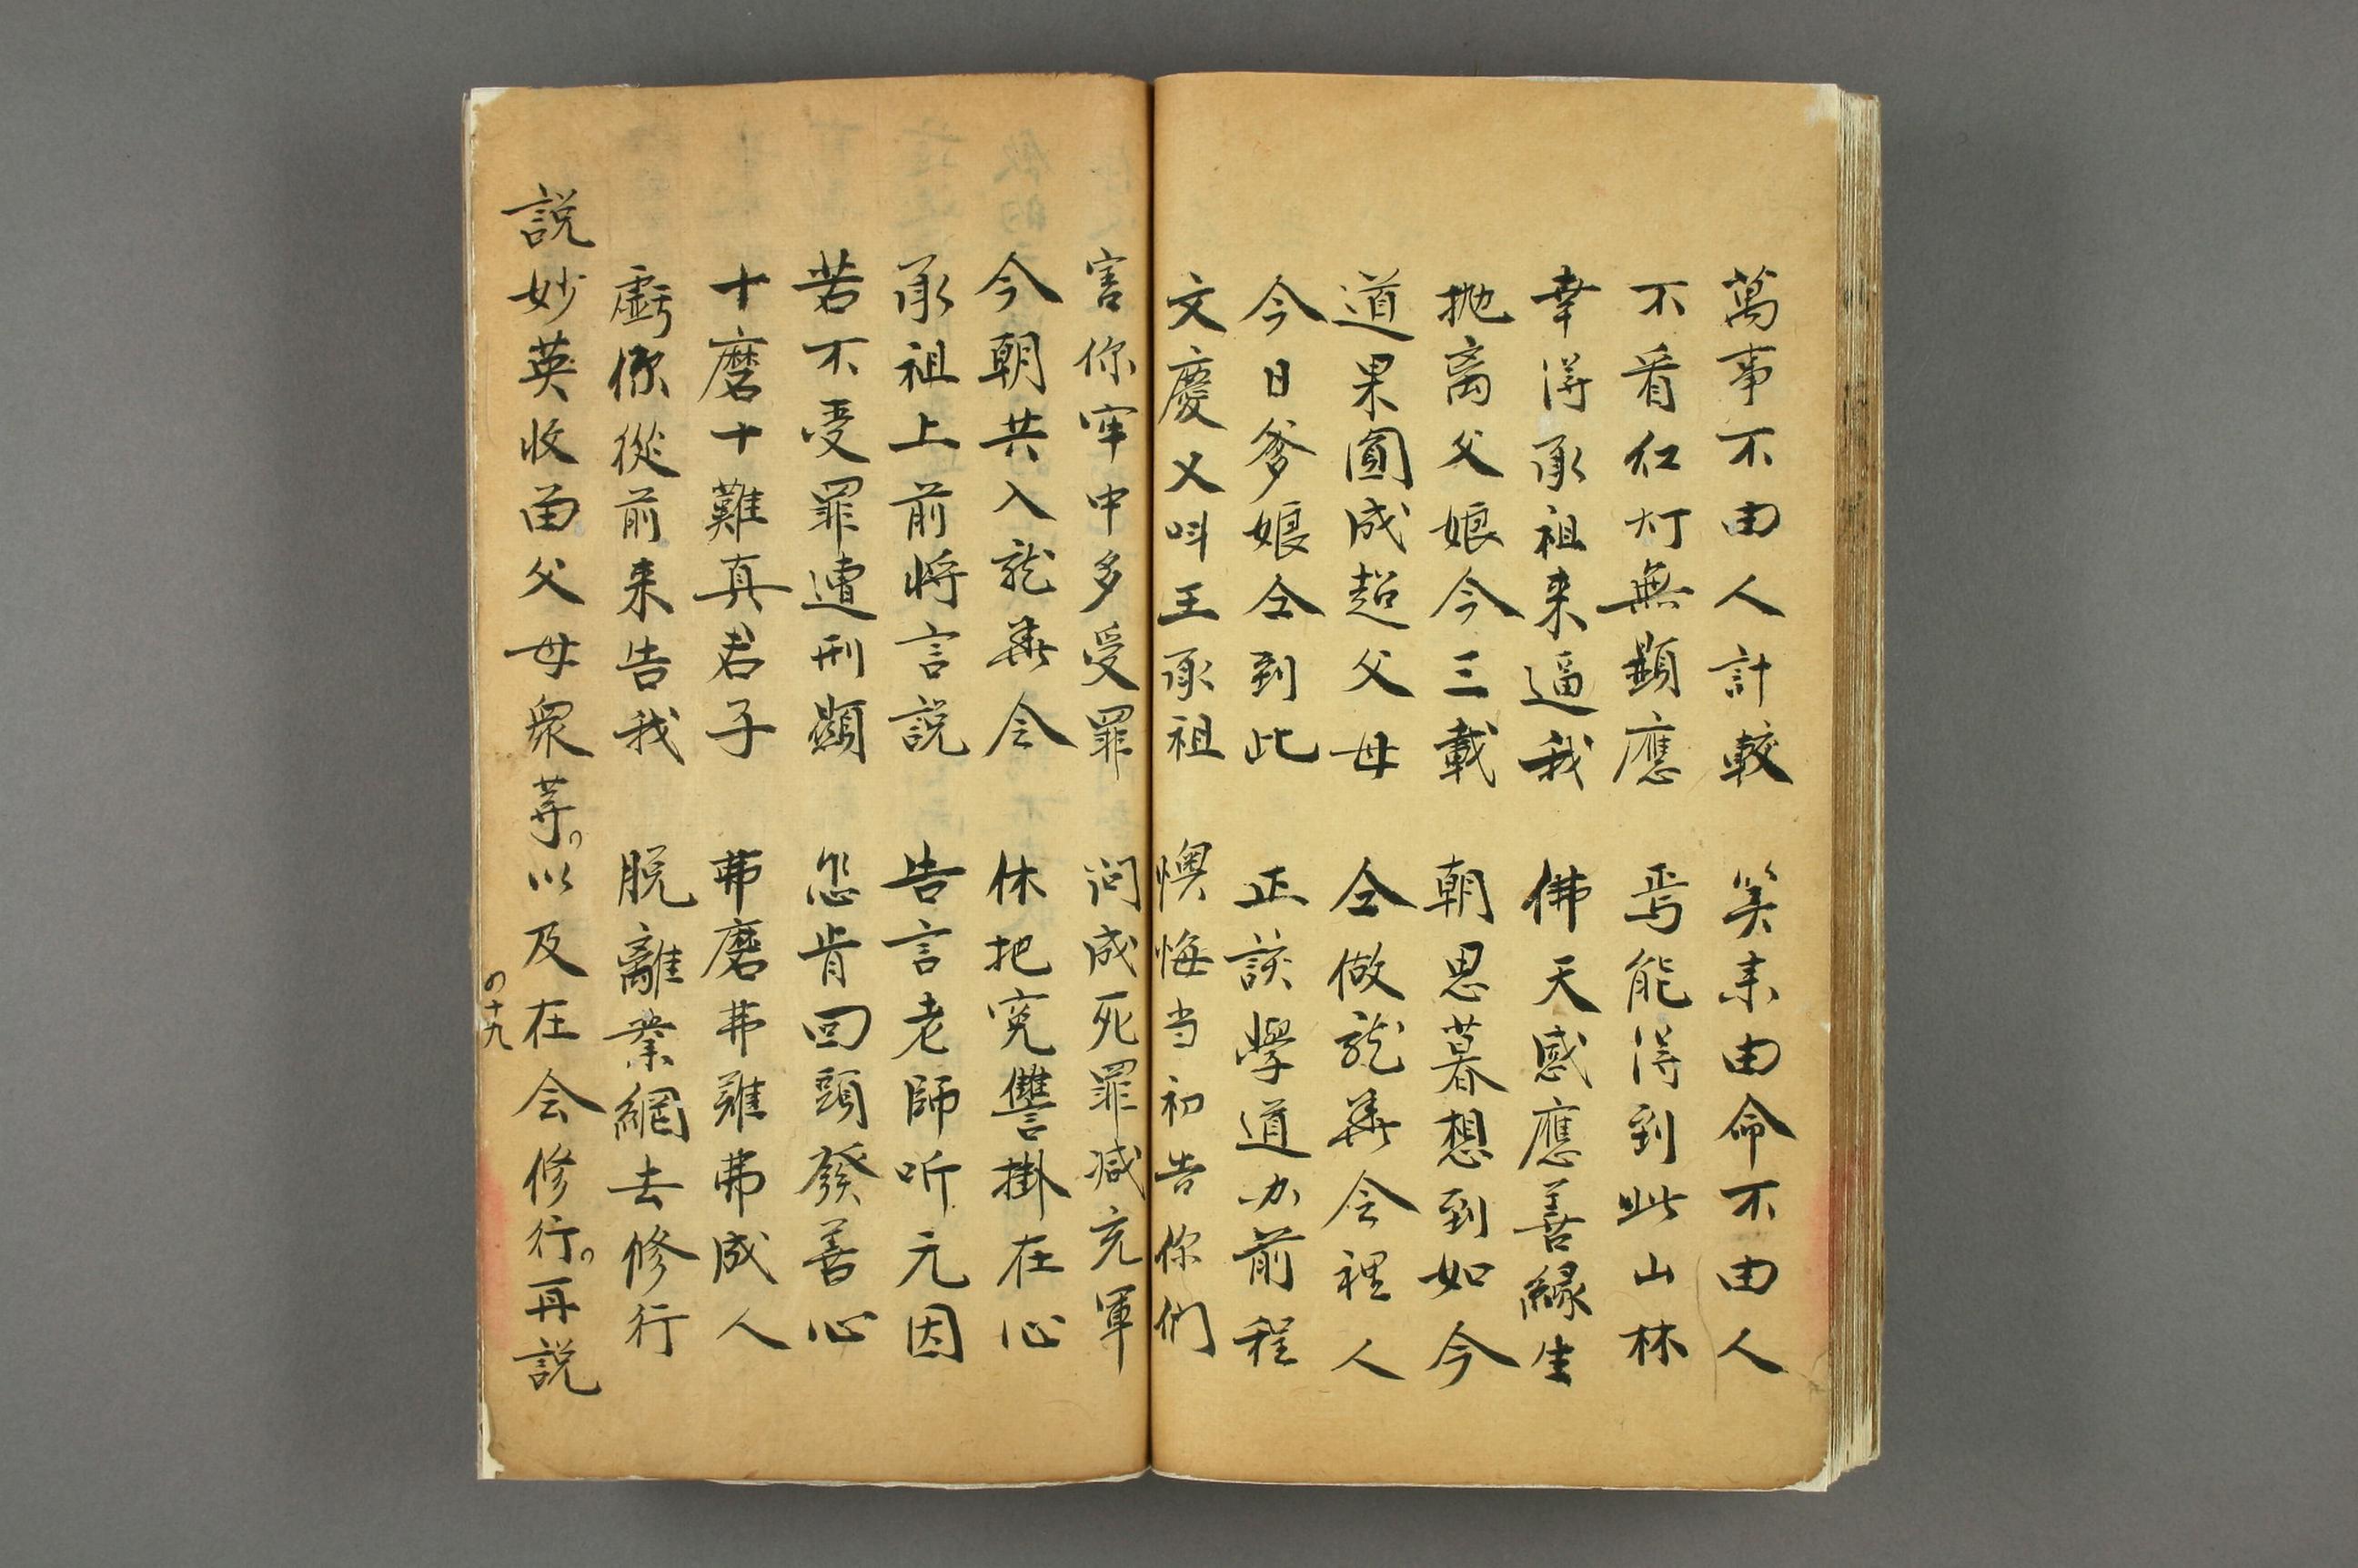 萬事不由人計較　筭来由命不由人
不看红灯無顯應　焉能淂到此山林
幸淂承祖来逼我　佛天感應善緣生
抛离父娘今三載　朝思暮想到如今
道果圓成超父母　仝做龍華会裡人
今日爹娘仝到此　正該學道办前程
文慶又呌王承祖　懊悔当初告你們
害你牢中多受罪　问成死罪减充軍
今朝共入龍華会　休把寃讐掛在心
承祖上前将言説　告言老師听元因
若不受罪遭刑顯　怎肯回頭發善心
十磨十難真君子　弗磨弗難弗成人
虧你從前来告我　脱離業網去修行
説妙英收畄父母衆等。以及在会修行。再説
の十九